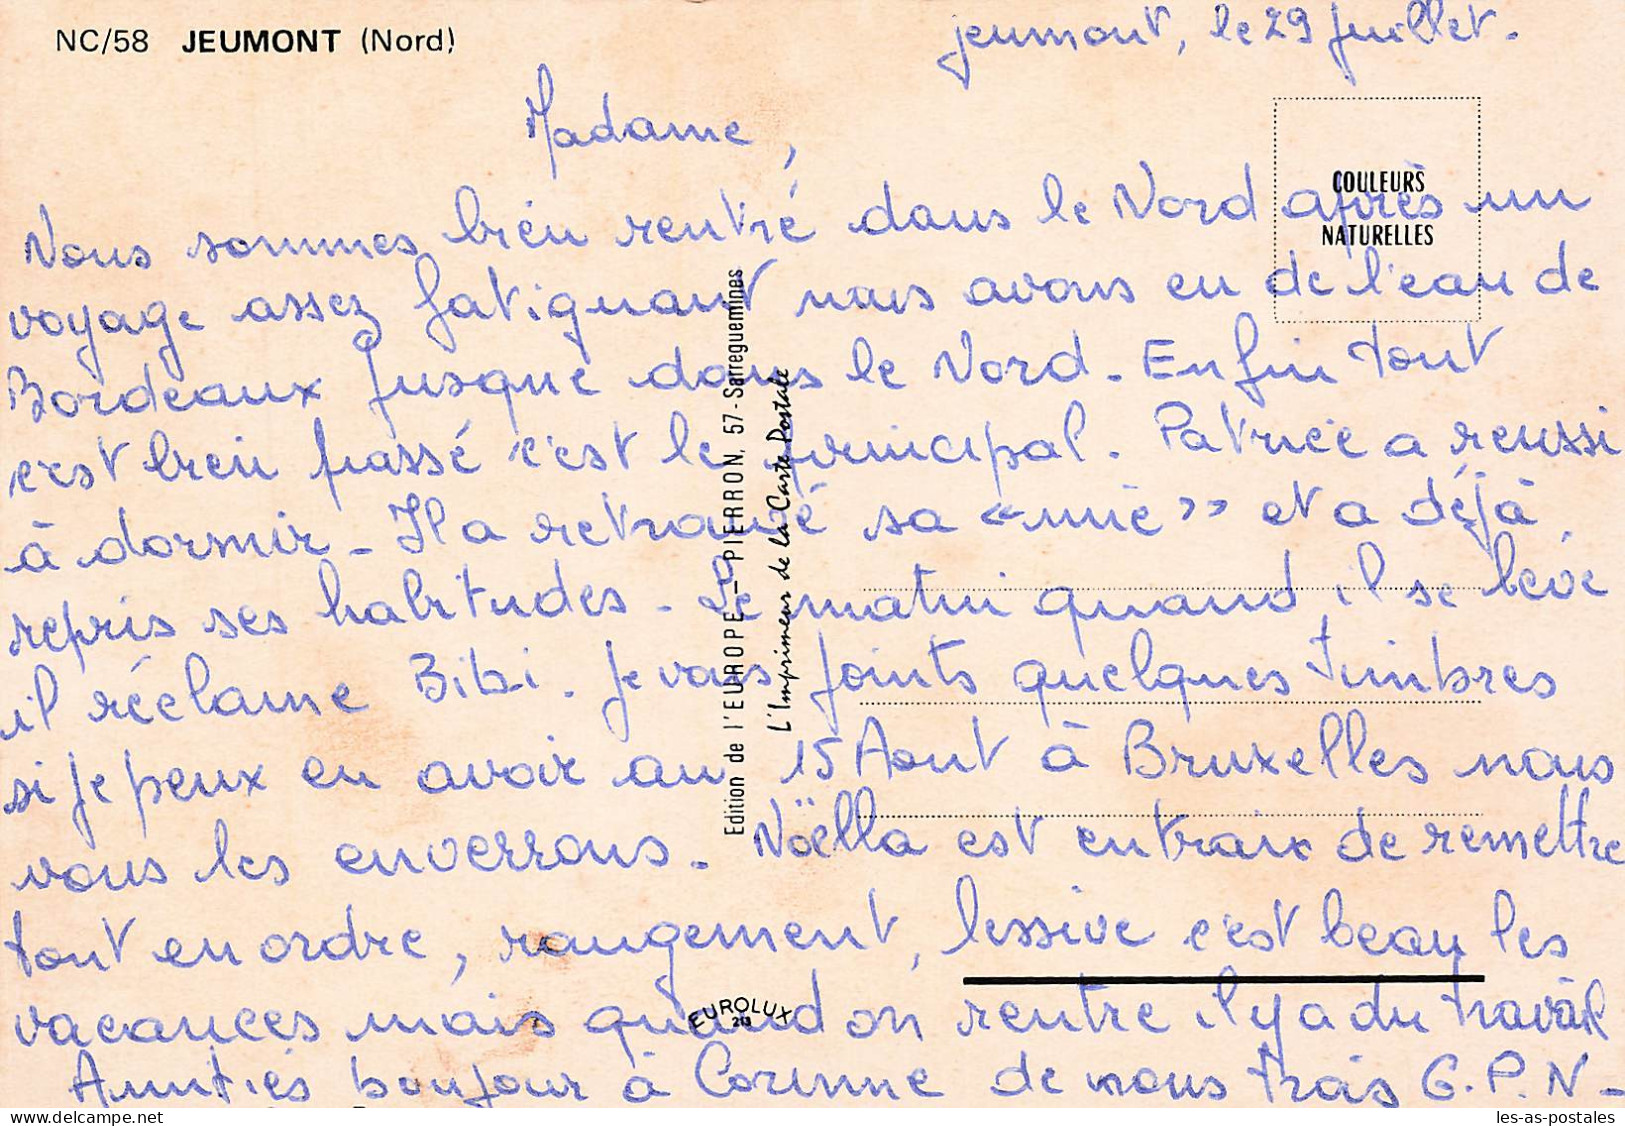 NC/58 JEUMONT (Nord)
jeumont, le 29 juillet.
Madame,
COULEURS
NATURELLES
Nous sommes bien rentré dans le Nord après un
voyage assez fatiguant nous avons eu de l'eau de
Bordeaux jusque dans le Nord. Enfin tout
c'est bien passé c'est le principal. Patrice a reussi
à dormir - Il a retrouvé sa « niè » et a déjà
repris ses habitudes - Le matin quand il se lève
il réclame Bibi. je vais joints quelques timbres
si je peux en avoir au 15 Aout à Bruxelles nous
vous les enverrons. Noëlla est entrain de remettre
tout en ordre, rangement, lessive c'est beau les
vacances mais quand on rentre il y a du travail
Amitiés bonjour à Corinne de nous trois G.P.N-
Edition de l'EUROPE - PIERRON, 57 - Sarreguemines
L'Imprimeur de la Carte Postale
EUROLUX
les-as-postales